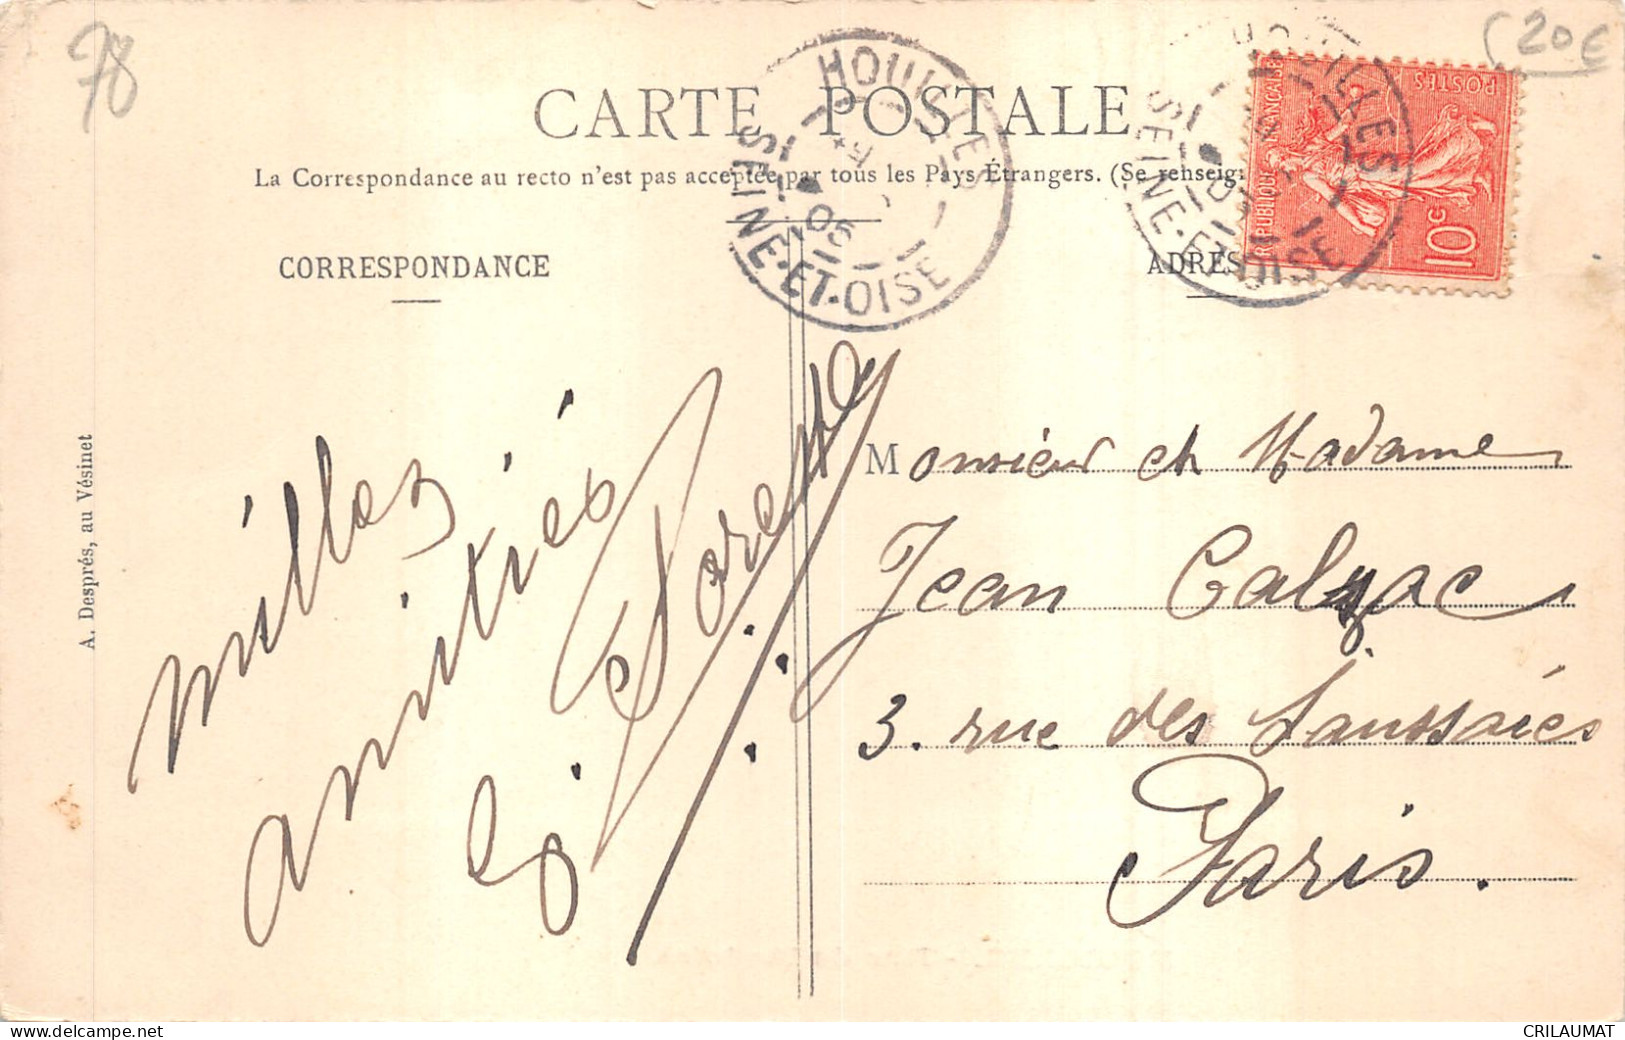 78
20€
CARTE POSTALE
La Correspondance au recto n'est pas acceptée par tous les Pays Étrangers. (Se renseig
HOUILLES
5
05
SEINE-ET-OISE
HOUILLES
SEINE-ET-OISE
RÉPUBLIQUE FRANÇAISE
POSTES
10c
CORRESPONDANCE
ADRES
A. Després, au Vésinet
milles
amitiés
Monsieur et Madame
Jean Calzac
3. rue des Saussaies
Paris.
CRILAUMAT